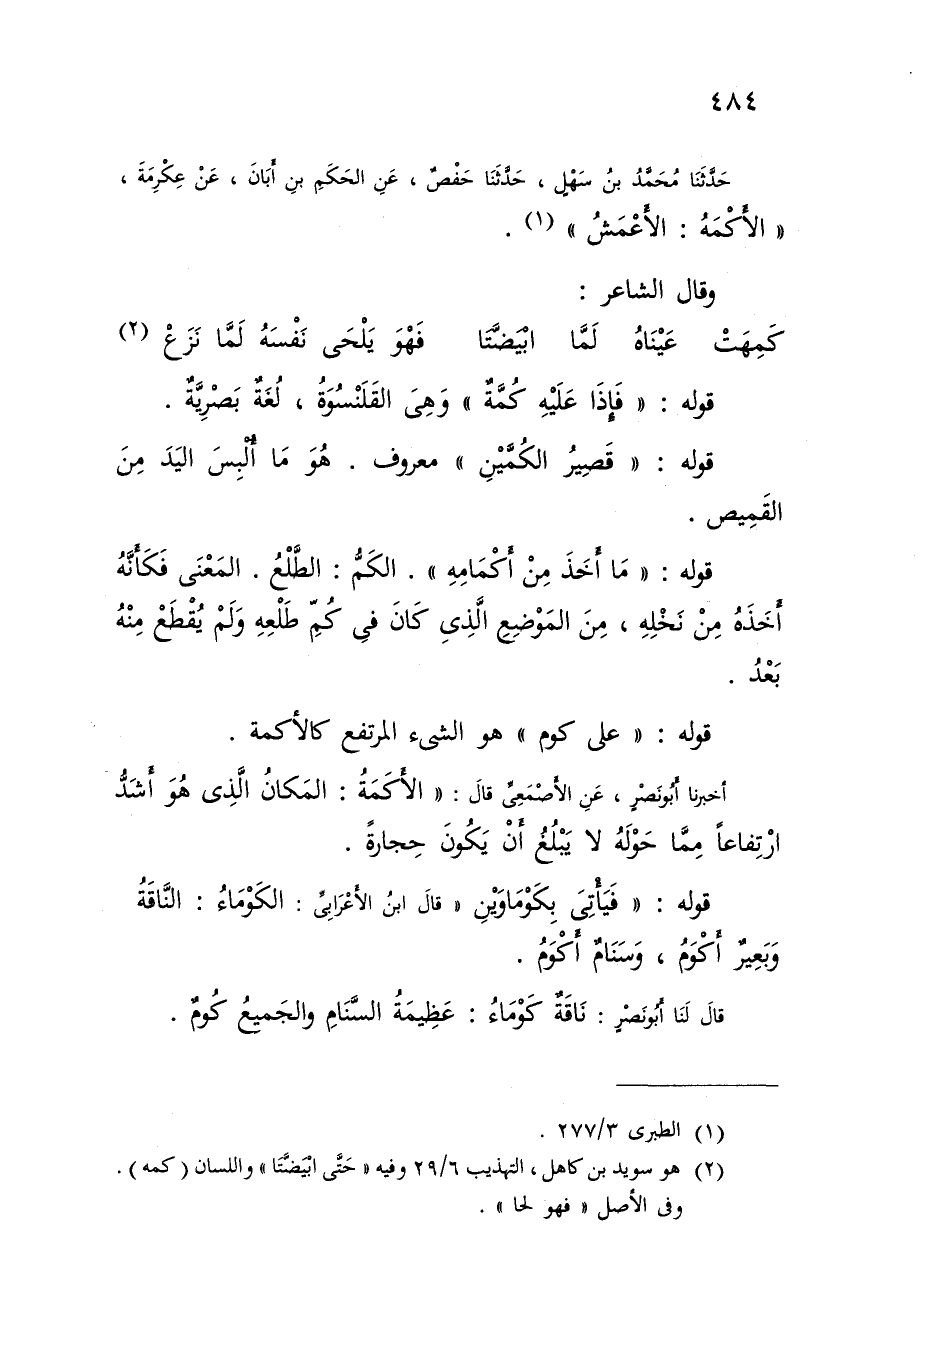 ٤٨٤
حَدَّثَنَا مُحَمَّدُ بنُ سَهْلٍ ، حَدَّثَنَا حَفْصٌ ، عَنِ الحَكَمِ بنِ أَبَانَ ، عَنْ عِكْرِمَةَ ،
« الأَكْمَهُ : الأَعْمَشُ » (١) .
وقال الشاعر :
كَمِهَتْ عَيْنَاهُ لَمَّا ابْيَضَّتَا فَهْوَ يَلْحَى نَفْسَهُ لَمَّا نَزَعْ (٢)
قوله : « فَإِذَا عَلَيْهِ كُمَّةٌ » وَهِىَ القَلَنْسُوَةُ ، لُغَةٌ بَصْرِيَّةٌ .
قوله : « قَصِيرُ الكُمَّيْنِ » معروف . هُوَ مَا أُلْبِسَ اليَدَ مِنَ
القَمِيص .
قوله : « مَا أَخَذَ مِنْ أَكْمَامِهِ » . الكَمُّ : الطَّلْعُ . المَعْنَى فَكَأَنَّهُ
أَخَذَهُ مِنْ نَخْلِهِ ، مِنَ المَوْضِعِ الَّذِى كَانَ فِى كُمِّ طَلْعِهِ وَلَمْ يُقْطَعْ مِنْهُ
بَعْدُ .
قوله : « على كوم » هو الشىء المرتفع كالأكمة .
أخبرنا أَبُونَصْرٍ ، عَنِ الأَصْمَعِىِّ قالَ : « الأَكَمَةُ : المَكانُ الَّذِى هُوَ أَشَدُّ
ارْتِفاعاً مِمَّا حَوْلَهُ لا يَبْلُغُ أَنْ يَكُونَ حِجارةً .
قوله : « فَيَأْتِىَ بِكَوْمَاوَيْنِ « قالَ ابنُ الأَعْرَابِىِّ : الكَوْمَاءُ : النَّاقَةُ
وَبَعِيرٌ أَكْوَمُ ، وَسَنَامٌ أَكْوَمُ .
قالَ لَنَا أَبُونَصْرٍ : نَاقَةٌ كَوْمَاءُ : عَظِيمَةُ السَّنَامِ والجَمِيعُ كُومٌ .
(١) الطبرى ٢٧٧/٣ .
(٢) هو سويد بن كاهل ، التهذيب ٢٩/٦ وفيه « حَتَّى ابْيَضَّتَا » واللسان ( كمه ) .
وفى الأصل « فهو لحا » .